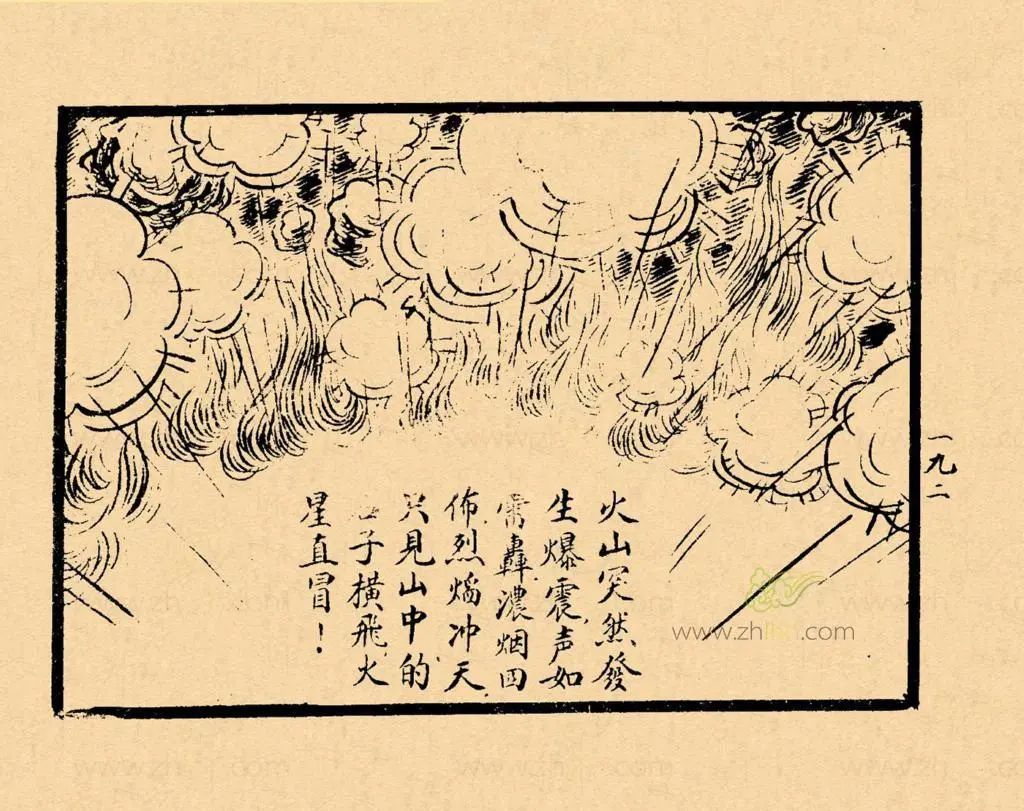 火山突然發
生爆震声如
雷轟濃烟四
佈烈焰冲天
只見山中的
子橫飛火
星直冒！
一九二
www.zh.com